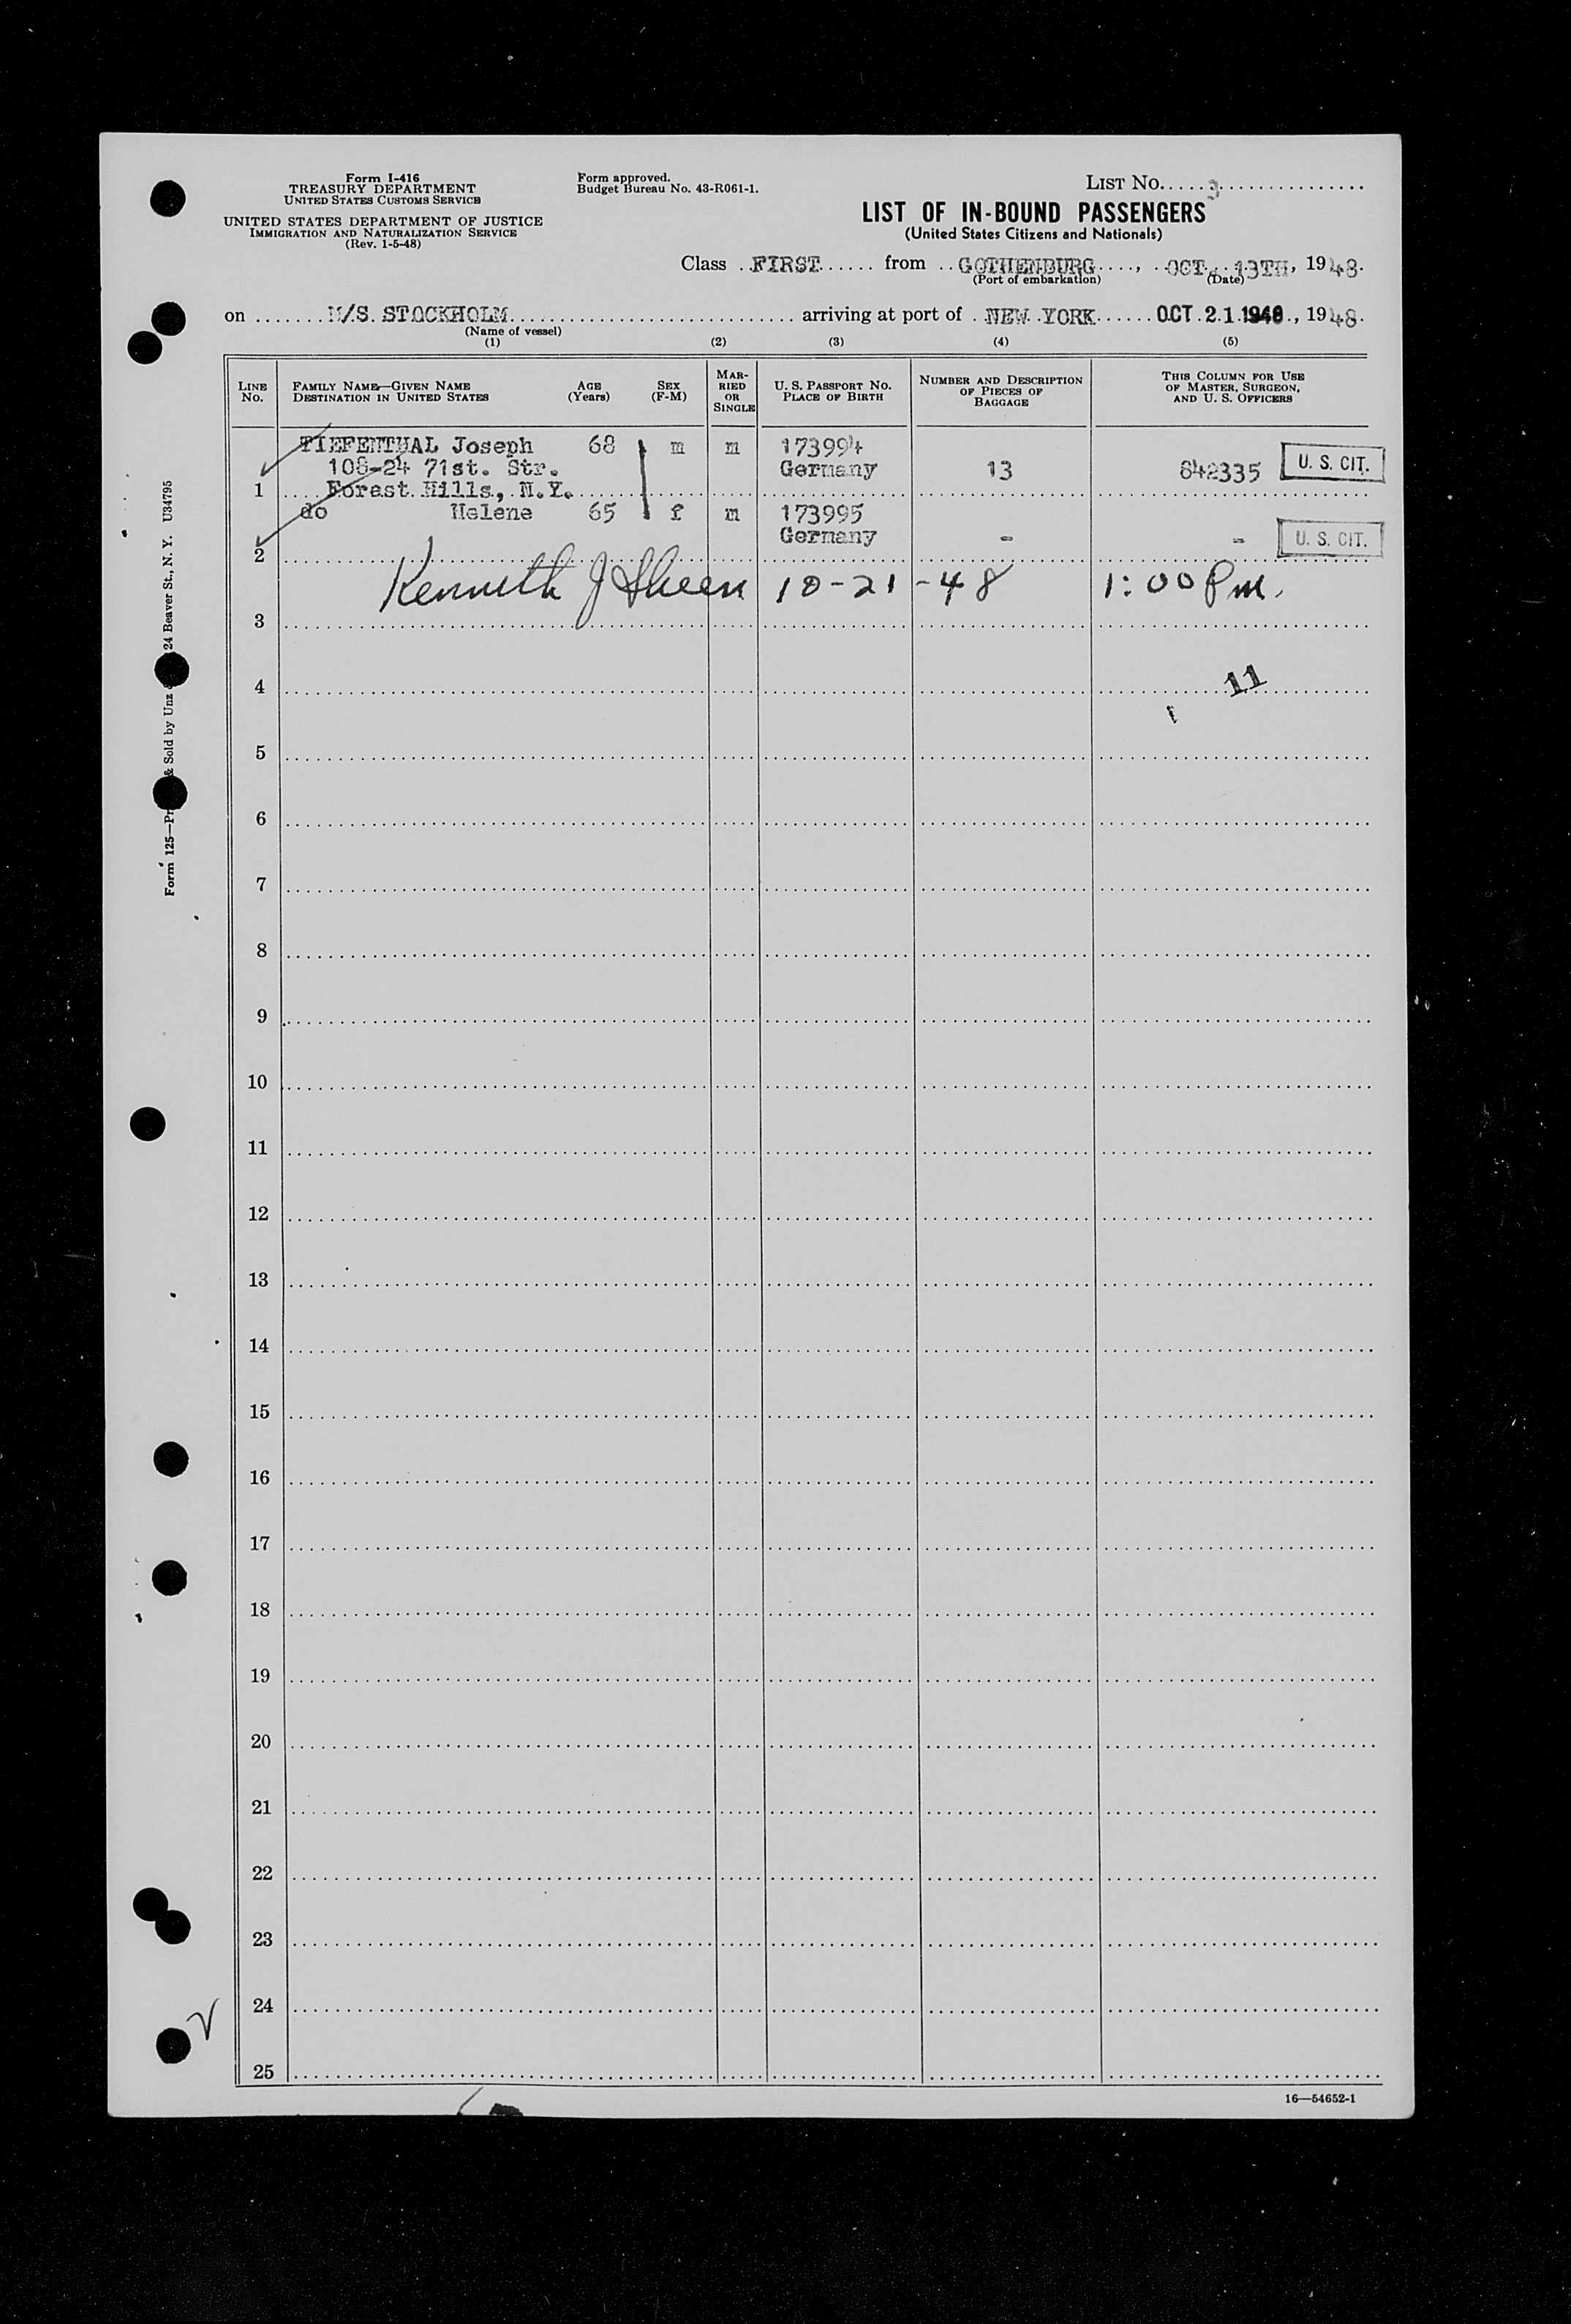 Form I-416
TREASURY DEPARTMENT
UNITED STATES CUSTOMS SERVICE
UNITED STATES DEPARTMENT OF JUSTICE
IMMIGRATION AND NATURALIZATION SERVICE
(Rev. 1-5-48)
Form approved.
Budget Bureau No. 43-R061-1.
LIST No. 3
LIST OF IN-BOUND PASSENGERS
(United States Citizens and Nationals)
Class FIRST from GOTHENBURG, OCT. 13TH, 1948.
(Port of embarkation) (Date)
on M/S. STOCKHOLM arriving at port of NEW YORK OCT 21 1948, 1948.
(Name of vessel)
(1) (2) (3) (4) (5)
LINE No.
FAMILY NAME—GIVEN NAME
DESTINATION IN UNITED STATES
AGE (Years)
SEX (F-M)
MARRIED OR SINGLE
U. S. PASSPORT NO.
PLACE OF BIRTH
NUMBER AND DESCRIPTION OF PIECES OF BAGGAGE
THIS COLUMN FOR USE OF MASTER, SURGEON, AND U. S. OFFICERS
TIEFENTHAL Joseph 68 m m 173994
108-24 71st. Str. Germany 13 842335 U. S. CIT.
1 Forest Hills, N.Y.
do Helene 65 f m 173995
Germany - - U. S. CIT.
2
Kenneth J Sheen 10-21-48 1:00 Pm.
3
4 11
5
6
7
8
9
10
11
12
13
14
15
16
17
18
19
20
21
22
23
24
25
16—54652-1
Form 125—Pr & Sold by Unz 24 Beaver St., N. Y. U34795